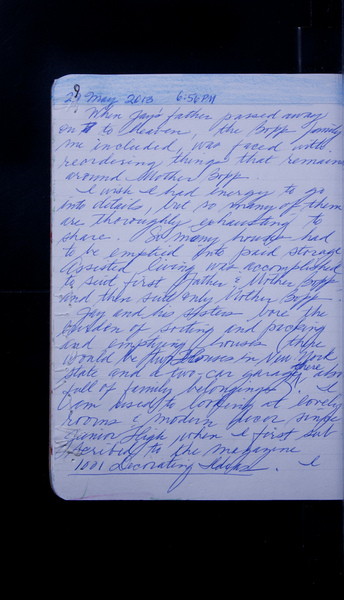 28 May 2013 6:56 PM
When Jay's father passed away
on to heaven, the Bopp family
me included, was faced with
reordering things that remain
around Mother Bopp.
I wish I had energy to go
into details, but so many of them
are thoroughly exhausting to
share. So many houses had
to be emptied into paid storage
Assisted living was accomplished
to suit first Father & Mother Bopp
and then suit only Mother Bopp.
Jay and his sisters bore the
burden of sorting and packing
and emptying houses (there
would be two houses in New York
state and a two-car garage there also
full of family belongings). I
am used to looking at lovely
rooms & modern decor since
Junior High when I first sub
scribed to the magazine
1001 Decorating Ideas. I